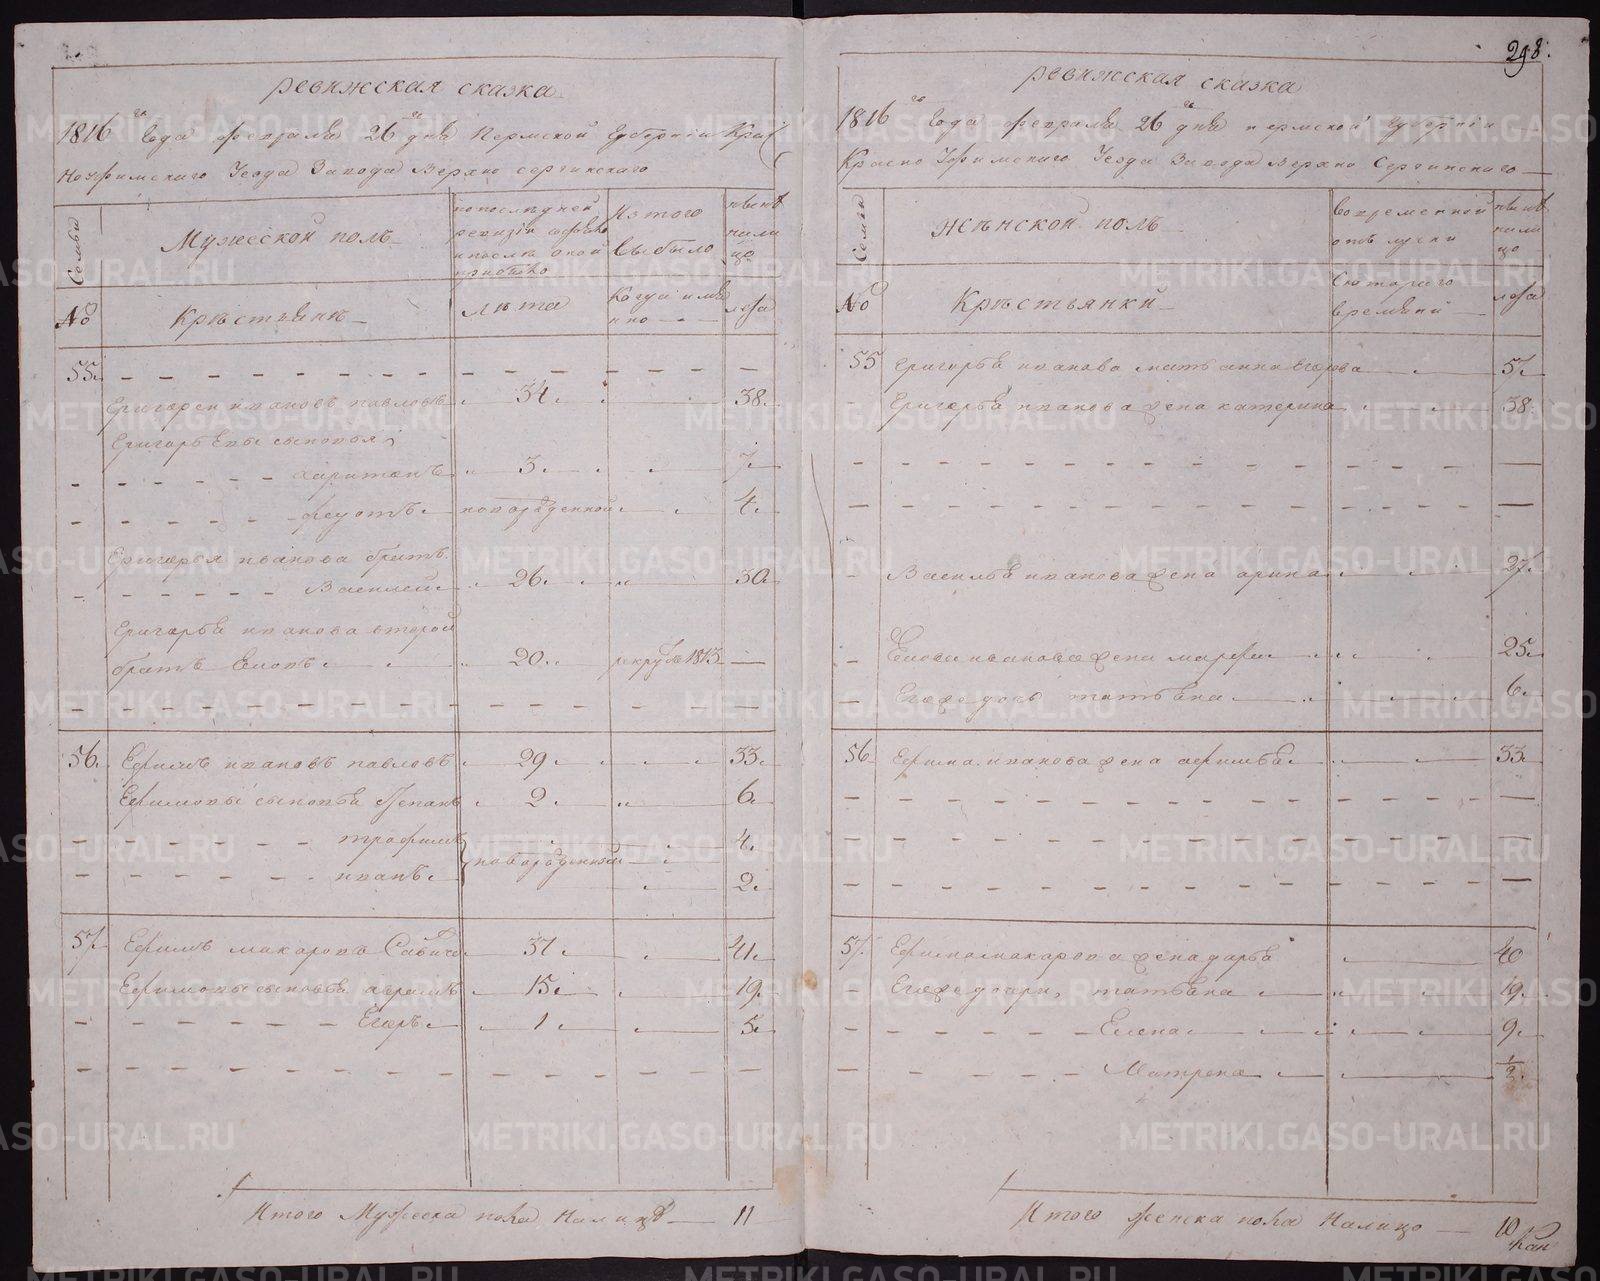 298.
ревижская сказка
1816 го Года февраля 26 го дня Пермской Губернии Крас
ноуфимскаго Уезда Завода Верхно сергинскаго
Семьи
Мужеской полъ
попоследней ревизии
и после оной прибыло
Из того выбыло
ныне на лицо
№
Крестьяне
лета
Когда имянно
лета
55.
Григорей ивановъ павловъ 34 38.
Григорьевы сыновья
харитонъ 3 7
федотъ новорожденной 4.
Григорья иванова братъ
Василей 26. 30.
Григорья иванова второй
братъ 20. рекруты 1813
56. Ефимъ ивановъ павловъ 29 33.
Ефимовы сыновья Степанъ 2 6
трофимъ новорожденной 4.
иванъ 2.
57. Ефимъ макаровъ Савичъ 37 41.
Ефимовы сыновья абрамъ 15 19.
Егоръ 1 5
Итого Мужеска пола Налицо 11
ревижская сказка
1816 го Года февраля 26 го дня пермской Губернии
Красно Уфимскаго Уезда Завода Верхно Сергинскаго
Семьи
женской полъ
во временной отлучки
ныне на лицо
№
Крестьянки
Скотораго времяни
лета
55 Григорья иванова мать анна Егорова 57.
Григорья иванова жена катерина 38.
Василья иванова жена арина 27.
иванова жена марфа 25.
Егоже дочь татьяна 6.
56. Ефима иванова жена афимья 33.
57. Ефима макарова жена дарья 40
Егоже дочри, татьяна 19.
Елена 9.
Матрена 1/2.
Итого женска пола Налицо 10
METRIKI.GASO-URAL.RU